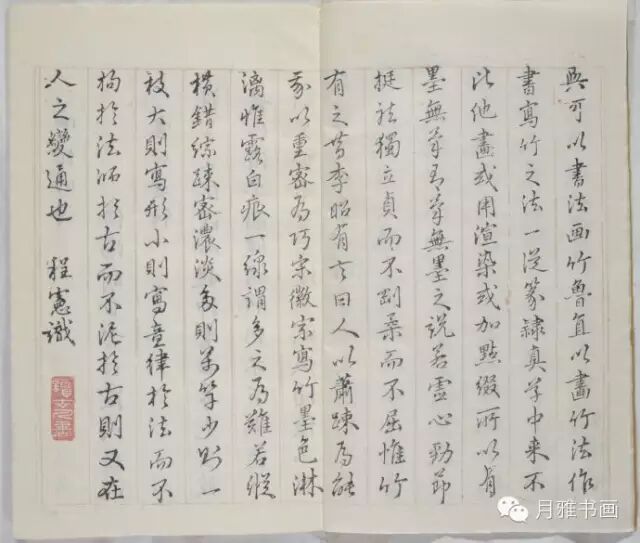 與可以書法画竹魯直以畫竹法作
書寫竹之法一従篆隸真草中来不
比他畫或用渲染或加點綴所以有
墨無筆有筆無墨之説若虛心勁節
挺然獨立貞而不剛柔而不屈惟竹
有之昔李昭有言曰人以蕭踈為能
我以重密為巧宋徽宗寫竹墨色淋
漓惟露白痕一線謂多之為難若縱
横錯綜踈密濃淡多則萬竿少則一
枝大則寫形小則寫意律於法而不
拘於法師於古而不泥於古則又在
人之變通也 程憲識
月雅书画